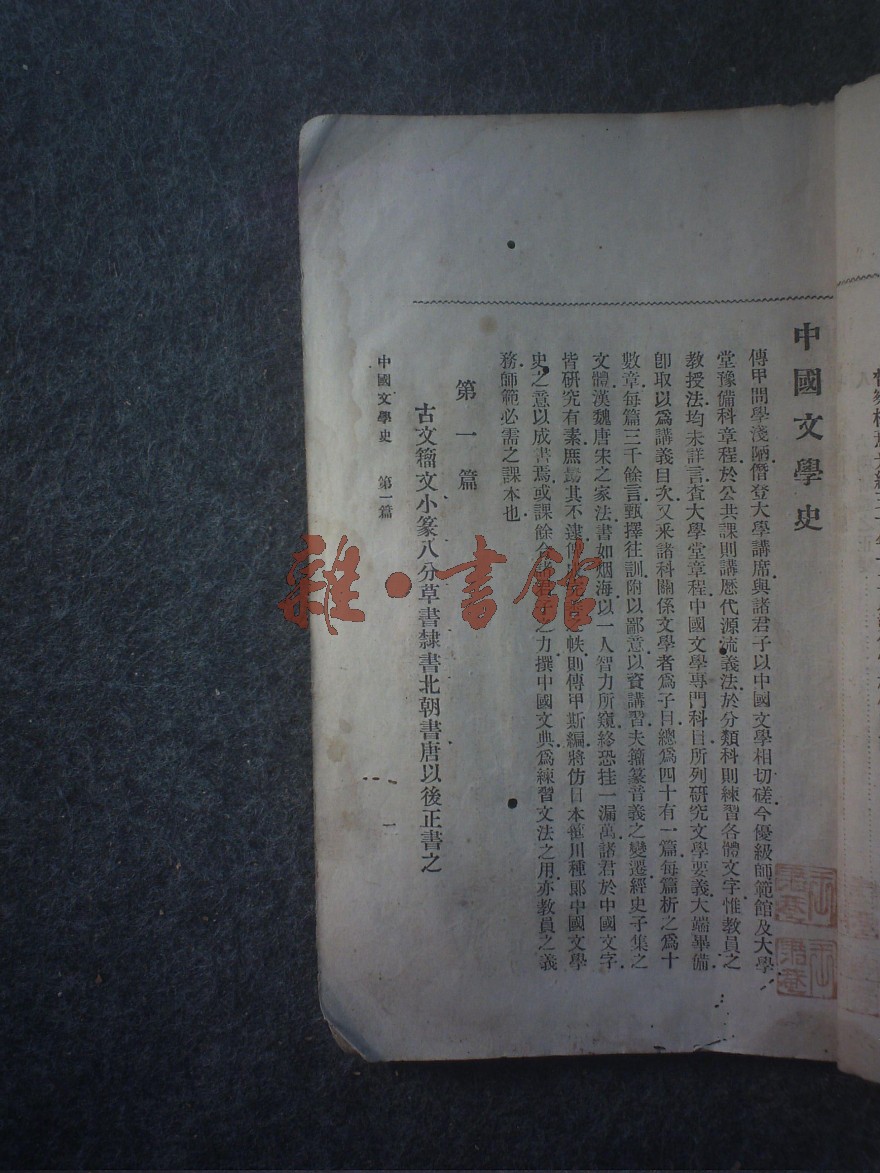 中國文學史
傳甲問學淺陋僭登大學講席與諸君子以中國文學相切磋今優級師範館及大學
堂豫備科章程於公共課則講歷代源流義法於分類科則練習各體文字惟教員之
教授法均未詳言查大學堂章程中國文學專門科目所列研究文學要義大端畢備
卽取以爲講義目次又釆諸科關係文學者爲子目總爲四十有一篇每篇析之爲十
數章每篇三千餘言甄擇往訓附以鄙意以資講習夫籀篆音義之變遷經史子集之
文體漢魏唐宋之家法書如烟海以一人智力所窺終恐挂一漏萬諸君於中國文字
皆硏究有素庶勗其不逮則傳甲斯編將仿日本笹川種郞中國文學
史之意以成書焉或課餘之力撰中國文典爲練習文法之用亦教員之義
務師範必需之課本也
第一篇
古文籀文小篆八分草書隸書北朝書唐以後正書之
中國文學史 第一篇 一
雜·書館